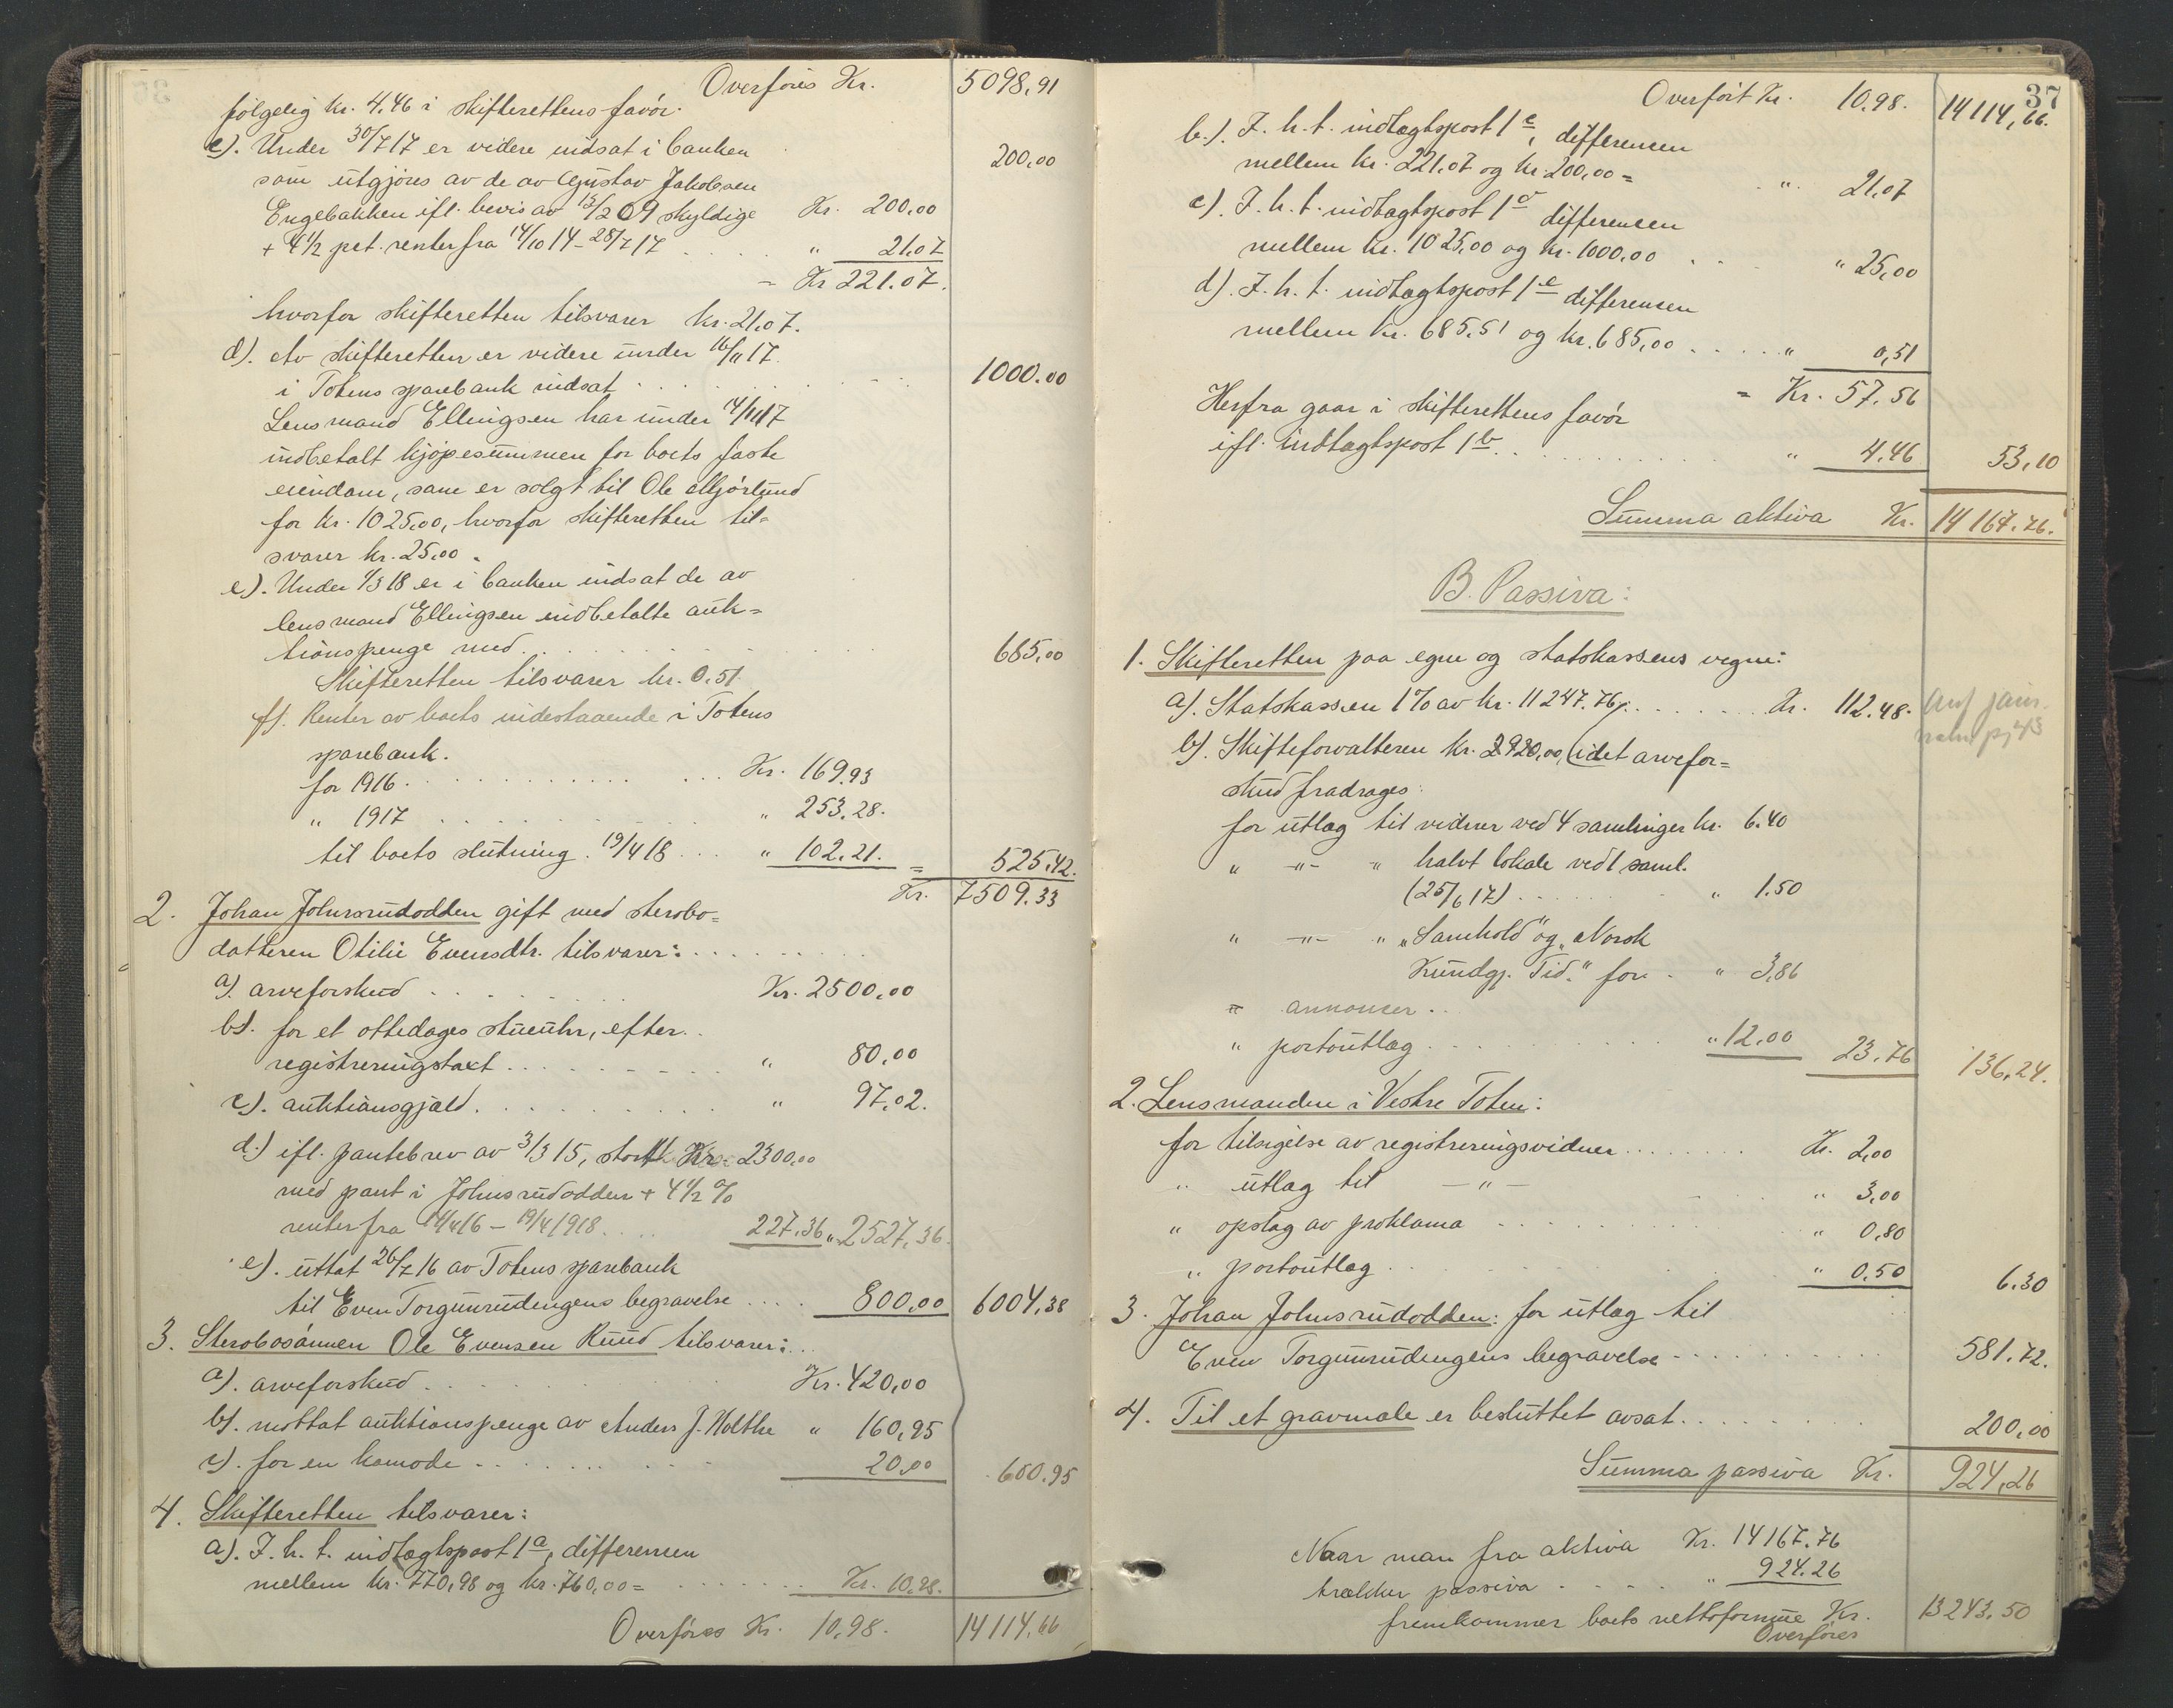 Overføres Kr. 5098,91
følgelig kr. 4.46 i skifterettens favør.
c). Under 30/7 17 er videre indsat i banken 200,00
som utgjøres av de av Gustav Jakobsen
Engebakken ifl. bevis av 13/2 09 skyldige Kr. 200,00
+ 4 1/2 pct. renter fra 14/10 14 - 28/7 17 . . . . . " 21,07
= Kr 221.07.
hvorfor skifteretten tilsvarer kr. 21,07.
d). Av skifteretten er videre under 16/11 17
i Totens sparebank indsat . . . . . . . 1000.00
Lensmand Ellingsen har under 14/11 17
indbetalt kjøpesummen for boets faste
eiendom, som er solgt til Ole Mjørlund
for kr. 1025,00, hvorfor skifteretten til=
svarer kr. 25,00.
e). Under 1/3 18 er i banken indsat de av
lensmand Ellingsen indbetalte auk=
tionspenge med. . . . . . . . . . 685,00
Skifteretten tilsvarer kr. 0.51
f). Renter av boets indestaaende i Totens
sparebank.
for 1916. . . . . . . . . . . . . . Kr. 169.93
" 1917 . . . . . . . . . " 253.28.
til boets slutning. 19/4 18 . . . " 102.21. = 525.42.
Kr. 7509.33
2. Johan Johnsrudodden gift med sterbo=
datteren Otilie Evensdtr. tilsvarer: . . . . . . . . .
a). arveforskud . . . . . . . . Kr. 2500,00
b). for et ottedages stueuhr, efter. .
registreringstakt . . . . . . . . . . " 80,00
c). auktionsgjæld. . . . . . . . . . . " 97,02.
d.) ifl. pantebrev av 3/3 15, stort Kr. 2300,00
med pant i Johnsrudodden + 4 1/2 %
renter fra 14/4 16 - 19/4 1918 . . . . 227.36 " 2527,36.
e). uttat 26/7 16 av Totens sparebank
til Even Torgunrudengens begravelse . . . . 800,00 6004,38
3. Sterbosønnen Ole Evensen Ruud tilsvarer: . . .
a). arveforskud . . . . . . . . . . Kr. 420,00
b). mottat auktionspenge av Anders J. Holthe " 160,95
c). for en komode . . . . . . . . . 20,00 600.95
4. Skifteretten tilsvarer:
a). F. h. t. indtægtspost 1a, differensen
mellem kr. 770,98 og kr. 760,00 = . . . . . . . Kr. 10,98.
Overføres Kr. 10,98. 14114,66
37
Overført Kr. 10,98. 14114,66.
b.). F. h. t. indtægtspost 1c, differensen
mellem kr. 221,07 og kr. 200,00 = . " 21,07
c). F. h. t. indtægtspost 1d differensen
mellem kr. 1025,00 og kr. 1000,00 . . . " 25,00
d). F. h. t. indtægtspost 1e differensen
mellem kr. 685,51 og kr. 685,00 . . . . . " 0,51
= Kr. 57.56
Herfra gaar i skifterettens favør
ifl. indtægtspost 1b. . . . . . . . . . . " 4.46 53,10
Summa aktiva Kr. 14167.76.
B. Passiva:
1. Skifteretten paa egne og statskassens vegne:
a). Statskassen 1% av kr. 11247.76. . . . . . . . Kr. 112.48.
b). Skifteforvalteren kr. 2920,00 (idet arvefor=
skud fradrages:
for utlæg til vidner ved 4 samlinger kr. 6.40
" -"- " halvt lokale ved 1 saml.
(25/6 17) . . . . . . . " 1.50
" -"- " "Samhold" og "Norsk
Kundgj. Tid." for . " 3,86
= annoncer . .
" portoutlæg . . . . . . . . . . . " 12.00 23.76 136,24.
2. Lensmanden i Vestre Toten:
for tilsigelse av registreringsvidner . . . . . . . . Kr. 2,00
" utlæg til -"- " 3,00
" opslag av proklama . . . . . . . . . " 0,80
" portoutlæg . . . . . . . . . . " 0,50 6.30
3. Johan Johnsrudodden: for utlæg til
Even Torgunrudengens begravelse . . . . . . . . . . 581.72.
4. Til et gravmæle er besluttet avsat. . . . . . . . . 200,00
Summa passiva Kr. 924,26
Naar man fra aktiva Kr. 14167.76
trækker passiva . . . . . " 924.26
fremkommer boets nettoformue Kr. 13243,50
Overføres